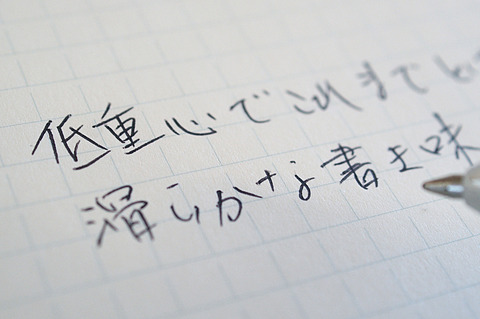 低重心でこれまでと
滑らかな書き味